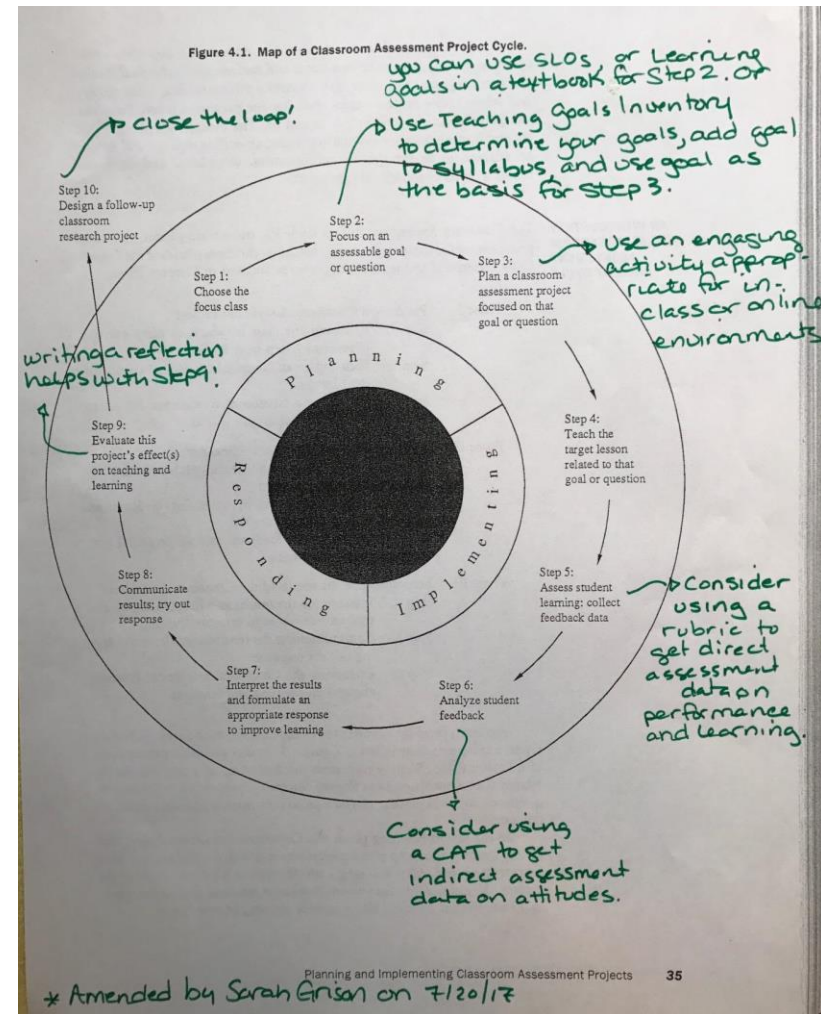 Figure 4.1. Map of a Classroom Assessment Project Cycle.
you can use SLOs, or Learning
goals in a textbook for Step 2. Or
Use Teaching Goals Inventory
to determine your goals, add goal
to syllabus, and use goal as
the basis for Step 3.
close the loop!
Step 10:
Design a follow-up
classroom
research project
Step 1:
Choose the
focus class
Step 2:
Focus on an
assessable goal
or question
Step 3:
Plan a classroom
assessment project
focused on that
goal or question
Use an engaging
activity approp-
riate for in-
class or online
environments
writing a reflection
helps with Step 9!
Planning
Implementing
Responding
Step 4:
Teach the
target lesson
related to that
goal or question
Step 5:
Assess student
learning: collect
feedback data
Consider
using a
rubric to
get direct
assessment
data on
performance
and learning.
Step 6:
Analyze student
feedback
Consider using
a CAT to get
indirect assessment
data on attitudes.
Step 7:
Interpret the results
and formulate an
appropriate response
to improve learning
Step 8:
Communicate
results; try out
response
Step 9:
Evaluate this
project's effect(s)
on teaching and
learning
Planning and Implementing Classroom Assessment Projects 35
* Amended by Sarah Grison on 7/20/17